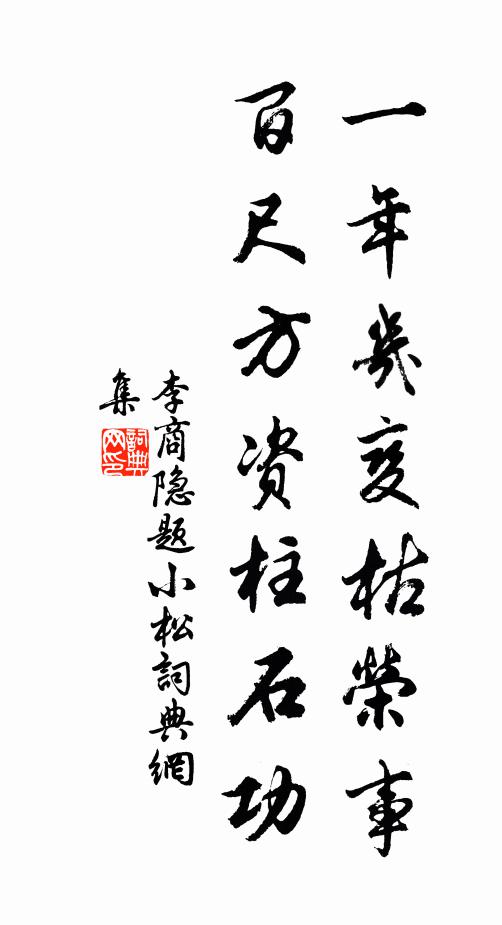 一年幾变枯榮事
百尺方资柱石功
李商隐题小松詞典網
集
詞典网印